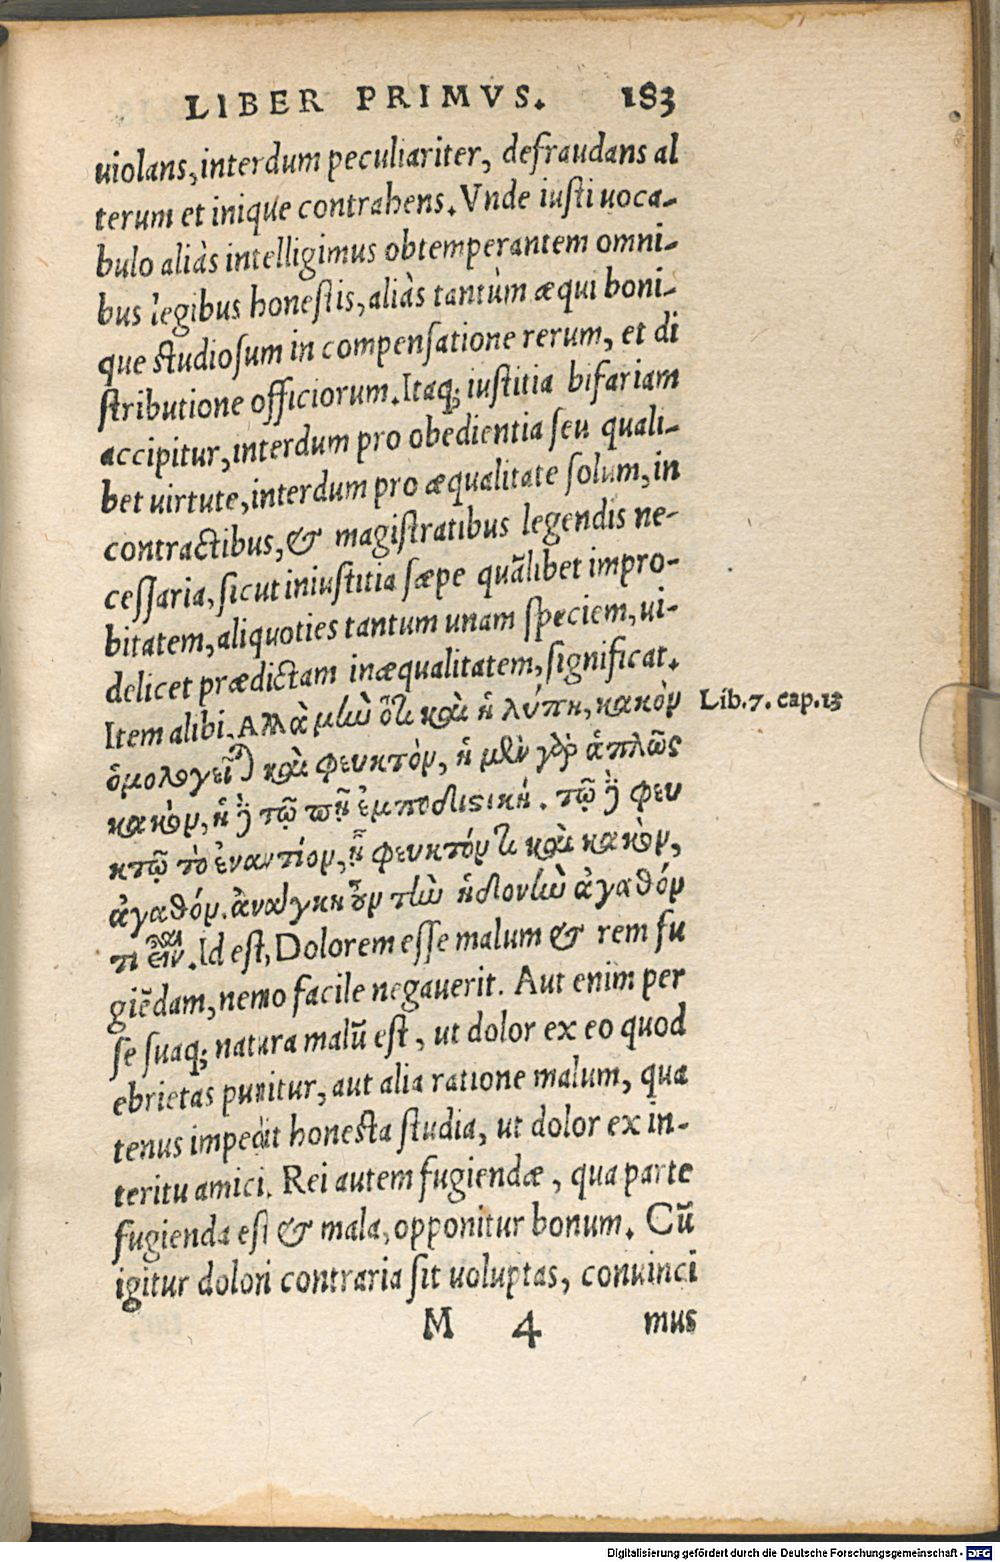 LIBER PRIMVS. 183
uiolans, interdum peculiariter, defraudans al
terum et inique contrahens. Vnde iusti uoca-
bulo aliàs intelligimus obtemperantem omni-
bus legibus honestis, aliàs tantùm æqui boni-
que studiosum in compensatione rerum, et di
stributione officiorum. Itaq; iustitia bifariam
accipitur, interdum pro obedientia seu quali-
bet uirtute, interdum pro æqualitate solum, in
contractibus, & magistratibus legendis ne-
cessaria, sicut iniustitia sæpe quãlibet impro-
bitatem, aliquoties tantum unam speciem, ui-
delicet prædictam inæqualitatem, significat.
Item alibi. Αλλὰ μὴν ὅτι καὶ ἡ λύπη, κακὸν
Lib. 7. cap. 13
ὁμολογεῖται καὶ φευκτὸν, ἡ μὲν γὰρ ἁπλῶς
κακὸν, ἡ δὲ τῷ πῇ ἐμποδιστική. τῷ δὲ φευ
κτῷ τὸ ἐναντίον, ᾗ φευκτόν τι καὶ κακὸν,
ἀγαθόν. ἀνάγκη οὖν τὴν ἡδονὴν ἀγαθόν
τι εἶναι. Id est, Dolorem esse malum & rem fu
giẽdam, nemo facile negauerit. Aut enim per
se suaq; natura malũ est, ut dolor ex eo quod
ebrietas punitur, aut alia ratione malum, qua
tenus impedit honesta studia, ut dolor ex in-
teritu amici. Rei autem fugiendæ, qua parte
fugienda est & mala, opponitur bonum. Cũ
igitur dolori contraria sit uoluptas, conuinci
M 4 mus
Digitalisierung gefördert durch die Deutsche Forschungsgemeinschaft - DFG